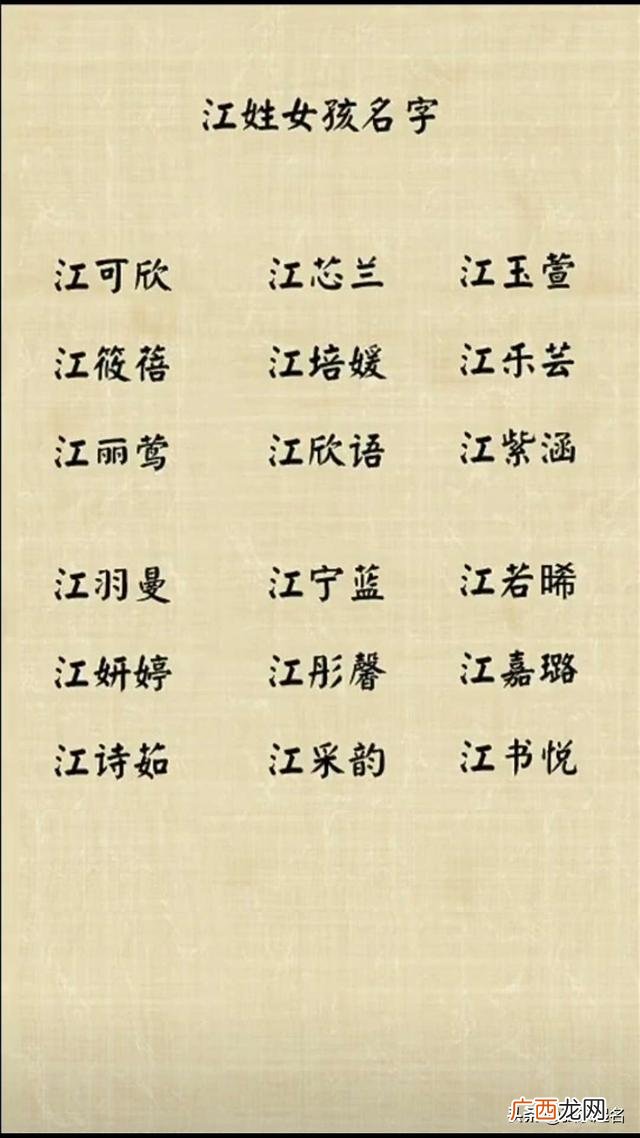 江姓女孩名字
江可欣 江芯兰 江玉萱
江筱蓓 江培媛 江乐芸
江丽莺 江欣语 江紫涵
江羽曼 江宁蓝 江若晞
江妍婷 江彤馨 江嘉璐
江诗茹 江采韵 江书悦
广西龙网